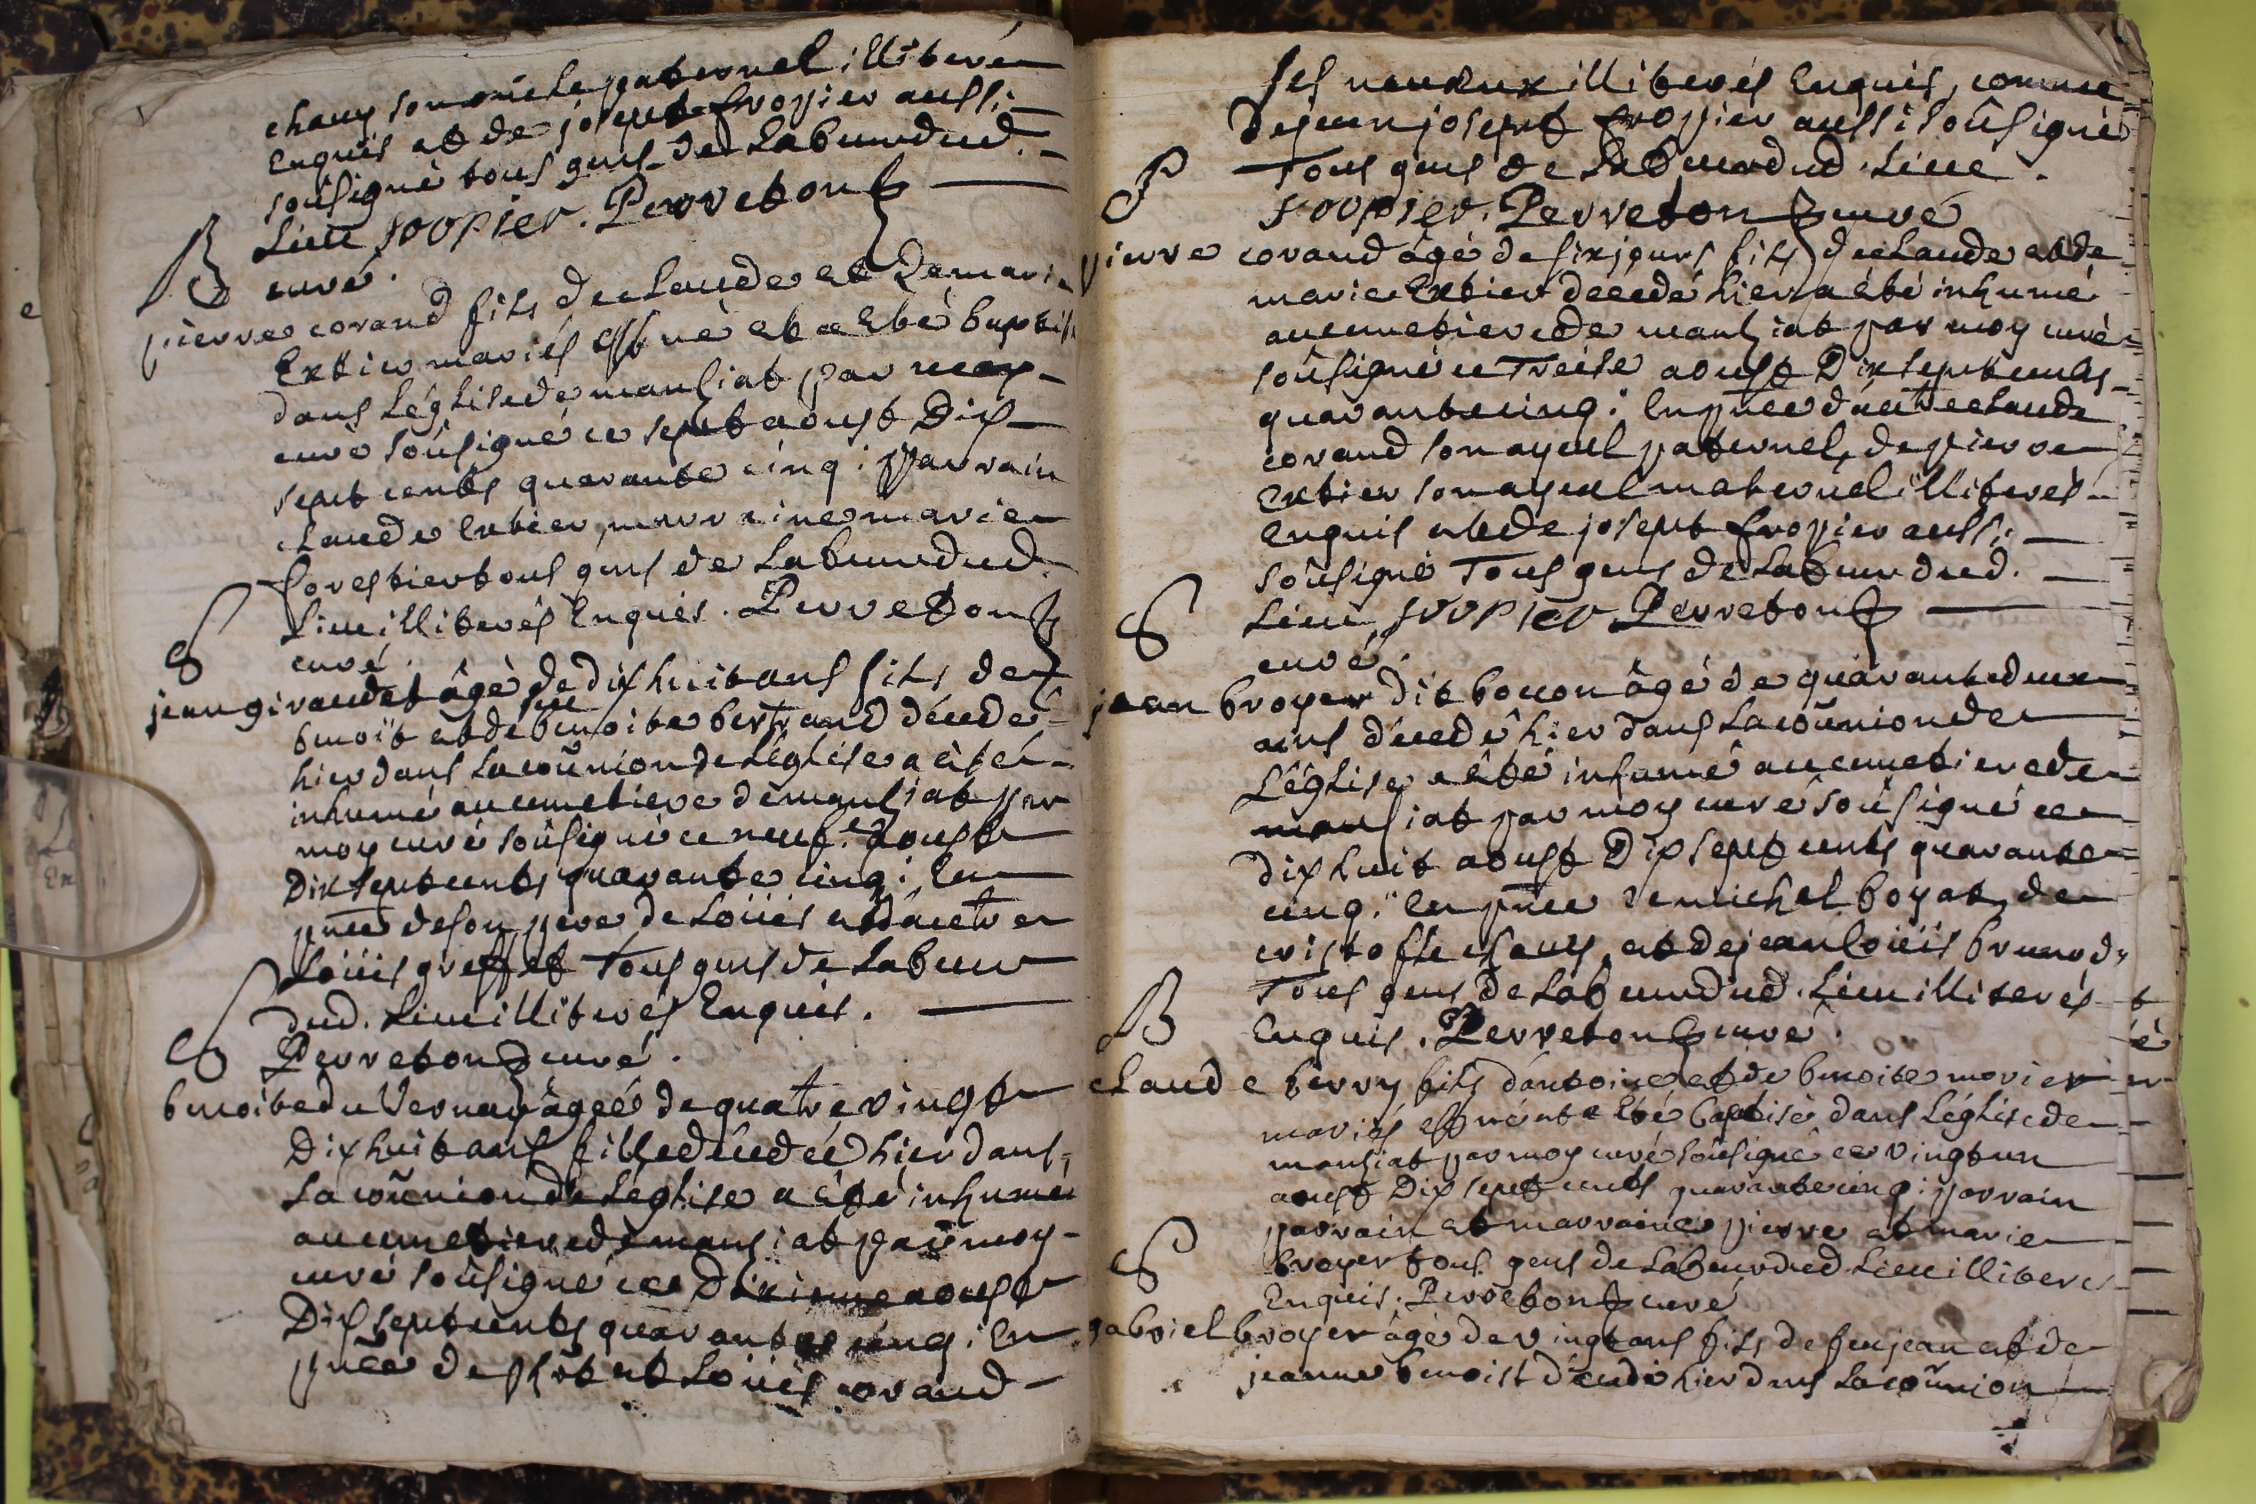 chany son oncle paternel illiteré
enquis et de josept fropier aussi
soûsigné tous gens de Labeur dud.
Lieu fropier. Perreton
curé.
B
pierre corand fils de claude et de marie
Extier mariés est né et a eté baptisé
dans L'églisede mansiat par moy
curé soûsigné ce sept aoust Dix
sept cents quarante cinq: parrain
claude Extier, marraine marie
forestier tous gens de Labeur dud.
Lieu illiterés Enquis. Perreton
curé.
S
jean giraudet âgé de dix huit ans fils de
feu
benoît et de benoite bertrand décedé
hier dans La coũnion de L'église a été
inhumé au cemetiere de mansiat par
moy curé soûsigné ce neuf aoust
Dix sept cents quarante cinq: En
pñce de son pere de Loüis et d'autre
Loüis greffet Tous gens de Labeur
dud. Lieu illiterés Enquis.
Perreton curé.
S
benoite du Vernay âgée de quatre vingt
Dix huit ans fille décedée hier dans
La coũnion de L'église a été inhumée
au cemetiere de mansiat par moy
curé soûsigné ce Dixieme aoust
Dix sept cents quarante cinq: En
pñce de phbt et Loüis corand
ses neveux illiterés Enquis, comme
de jean josept fropier aussi soûsigné
Tous gens de Labeur dud. Lieu.
fropier. Perreton curé
S
pierre corand âgé de six jours fils de claude et de
marie Extier decedé hier a été inhumé
au cemetiere de mansiat par moy curé
soûsigné ce Treise aoust Dix sept cents
quarante cinq: En pñce d'autre claude
corand son ayeul paternel, de pierre
extier son ayeul maternel illiterés
Enquis et de josept fropier aussi
soûsigné Tous gens de Labeur dud.
Lieu fropier Perreton
curé.
S
jean broyer dit bouon âgé de quarante deux
ans décedé hier dans La coũnion de
L'église a été inhumé au cemetiere de
mansiat par moy curé soûsigné ce
dix huit aoust Dix sept cents quarante
cinq: En pñce de michel boyat, de
cristofle chany, et de jean Loüis brunod,
Tous gens de Labeur dud. Lieu illiterés
Enquis. Perreton curé.
B
claude berry fils d'antoine et de benoite morier
mariés est né et a eté baptisé dans L'église de
mansiat par moy curé soûsigné ce vingt un
aoust Dix sept cents quarante cinq: parrain
parrain et marraine pierre et marie
broyer tous gens de Labeur dud. Lieu illiterés
Enquis. Perreton curé
S
gabriel broyer âgé de vingt ans fils de feu jean et de
jeanne benoist décedé hier dans La coũnion